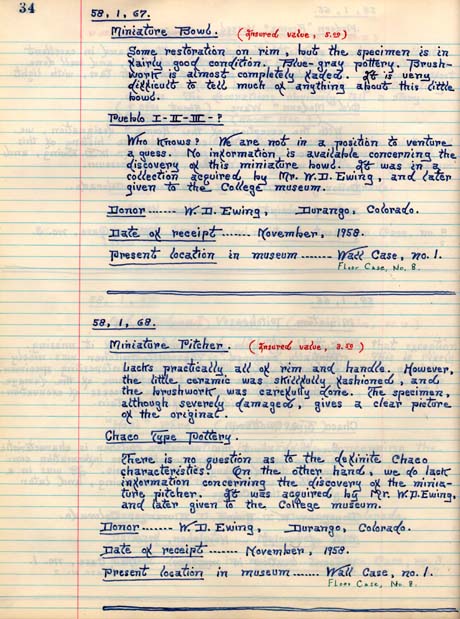 34
58, 1, 67.
Miniature Bowl. (Insured value, 5.00)
Some restoration on rim, but the specimen is in
fairly good condition. Blue-gray pottery. Brush-
work is almost completely faded. It is very
difficult to tell much of anything about this little
bowl.
Pueblo I-II-III-?
Who knows? We are not in a position to venture
a guess. No information is available concerning the
discovery of this miniature bowl. It was in a
collection acquired by Mr. W.D. Ewing, and later
given to the College museum.
Donor ------- W.D. Ewing, Durango, Colorado.
Date of receipt ------- November, 1958.
Present location in museum ------- Wall Case, no. 1.
Floor Case, No. 8.
58, 1, 68.
Miniature Pitcher. (Insured value, 3.50)
Lacks practically all of rim and handle. However,
the little ceramic was skillfully fashioned, and
the brushwork was carefully done. The specimen,
although severely damaged, gives a clear picture
of the original.
Chaco Type Pottery.
There is no question as to the definite Chaco
characteristics. On the other hand, we do lack
information concerning the discovery of the minia-
ture pitcher. It was acquired by Mr. W.D. Ewing,
and later given to the College museum.
Donor ------- W.D. Ewing, Durango, Colorado.
Date of receipt ------- November, 1958.
Present location in museum ------- Wall Case, no. 1.
Floor Case, No. 8.